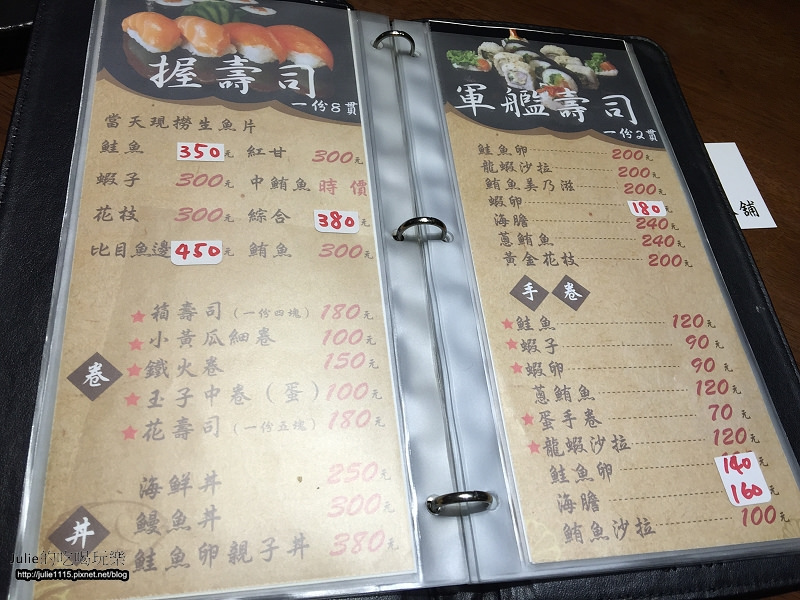 握壽司
一份8貫
當天現撈生魚片
鮭魚 350元 紅甘 300元
蝦子 300元 中鮪魚 時價
花枝 300元 綜合 380元
比目魚邊 450元 鮪魚 300元
卷
★箱壽司(一份四塊) 180元
★小黃瓜細卷 100元
★鐵火卷 150元
★玉子中卷(蛋) 100元
★花壽司(一份五塊) 180元
丼
海鮮丼 250元
鰻魚丼 300元
鮭魚卵親子丼 380元
軍艦壽司
一份2貫
鮭魚卵 200元
龍蝦沙拉 200元
鮪魚美乃滋 200元
蝦卵 180元
海膽 240元
蔥鮪魚 240元
黃金花枝 200元
手卷
★鮭魚 120元
★蝦子 90元
★蝦卵 90元
蔥鮪魚 120元
★蛋手卷 70元
★龍蝦沙拉 120元
鮭魚卵 140
海膽 160
鮪魚沙拉 100元
舖
Julie的吃喝玩樂
http://julie1115.pixnet.net/blog